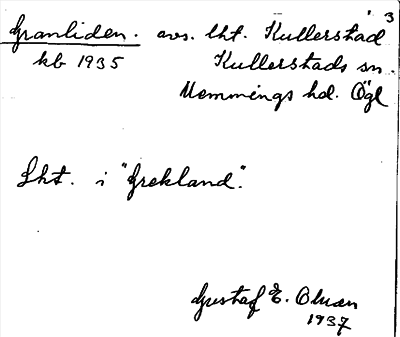 3
Granliden. avs. lht. Kullerstad
kb 1935 Kullerstads sn.
Memmings hd. Ögl
Lht. i "Grekland".
Gustaf E. Olsson
1937